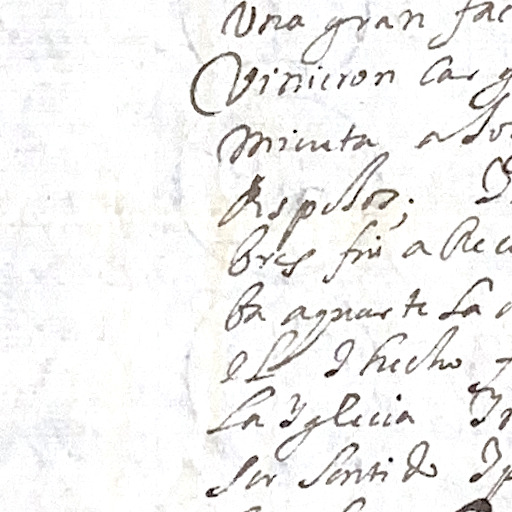 Una gran fac
Vinieron Car g
minuta a do
Respeloz; Y
bres fui a Rec
ba aguarte La
el dhecho
La Yglecia Yn
Ser Sentido Yp